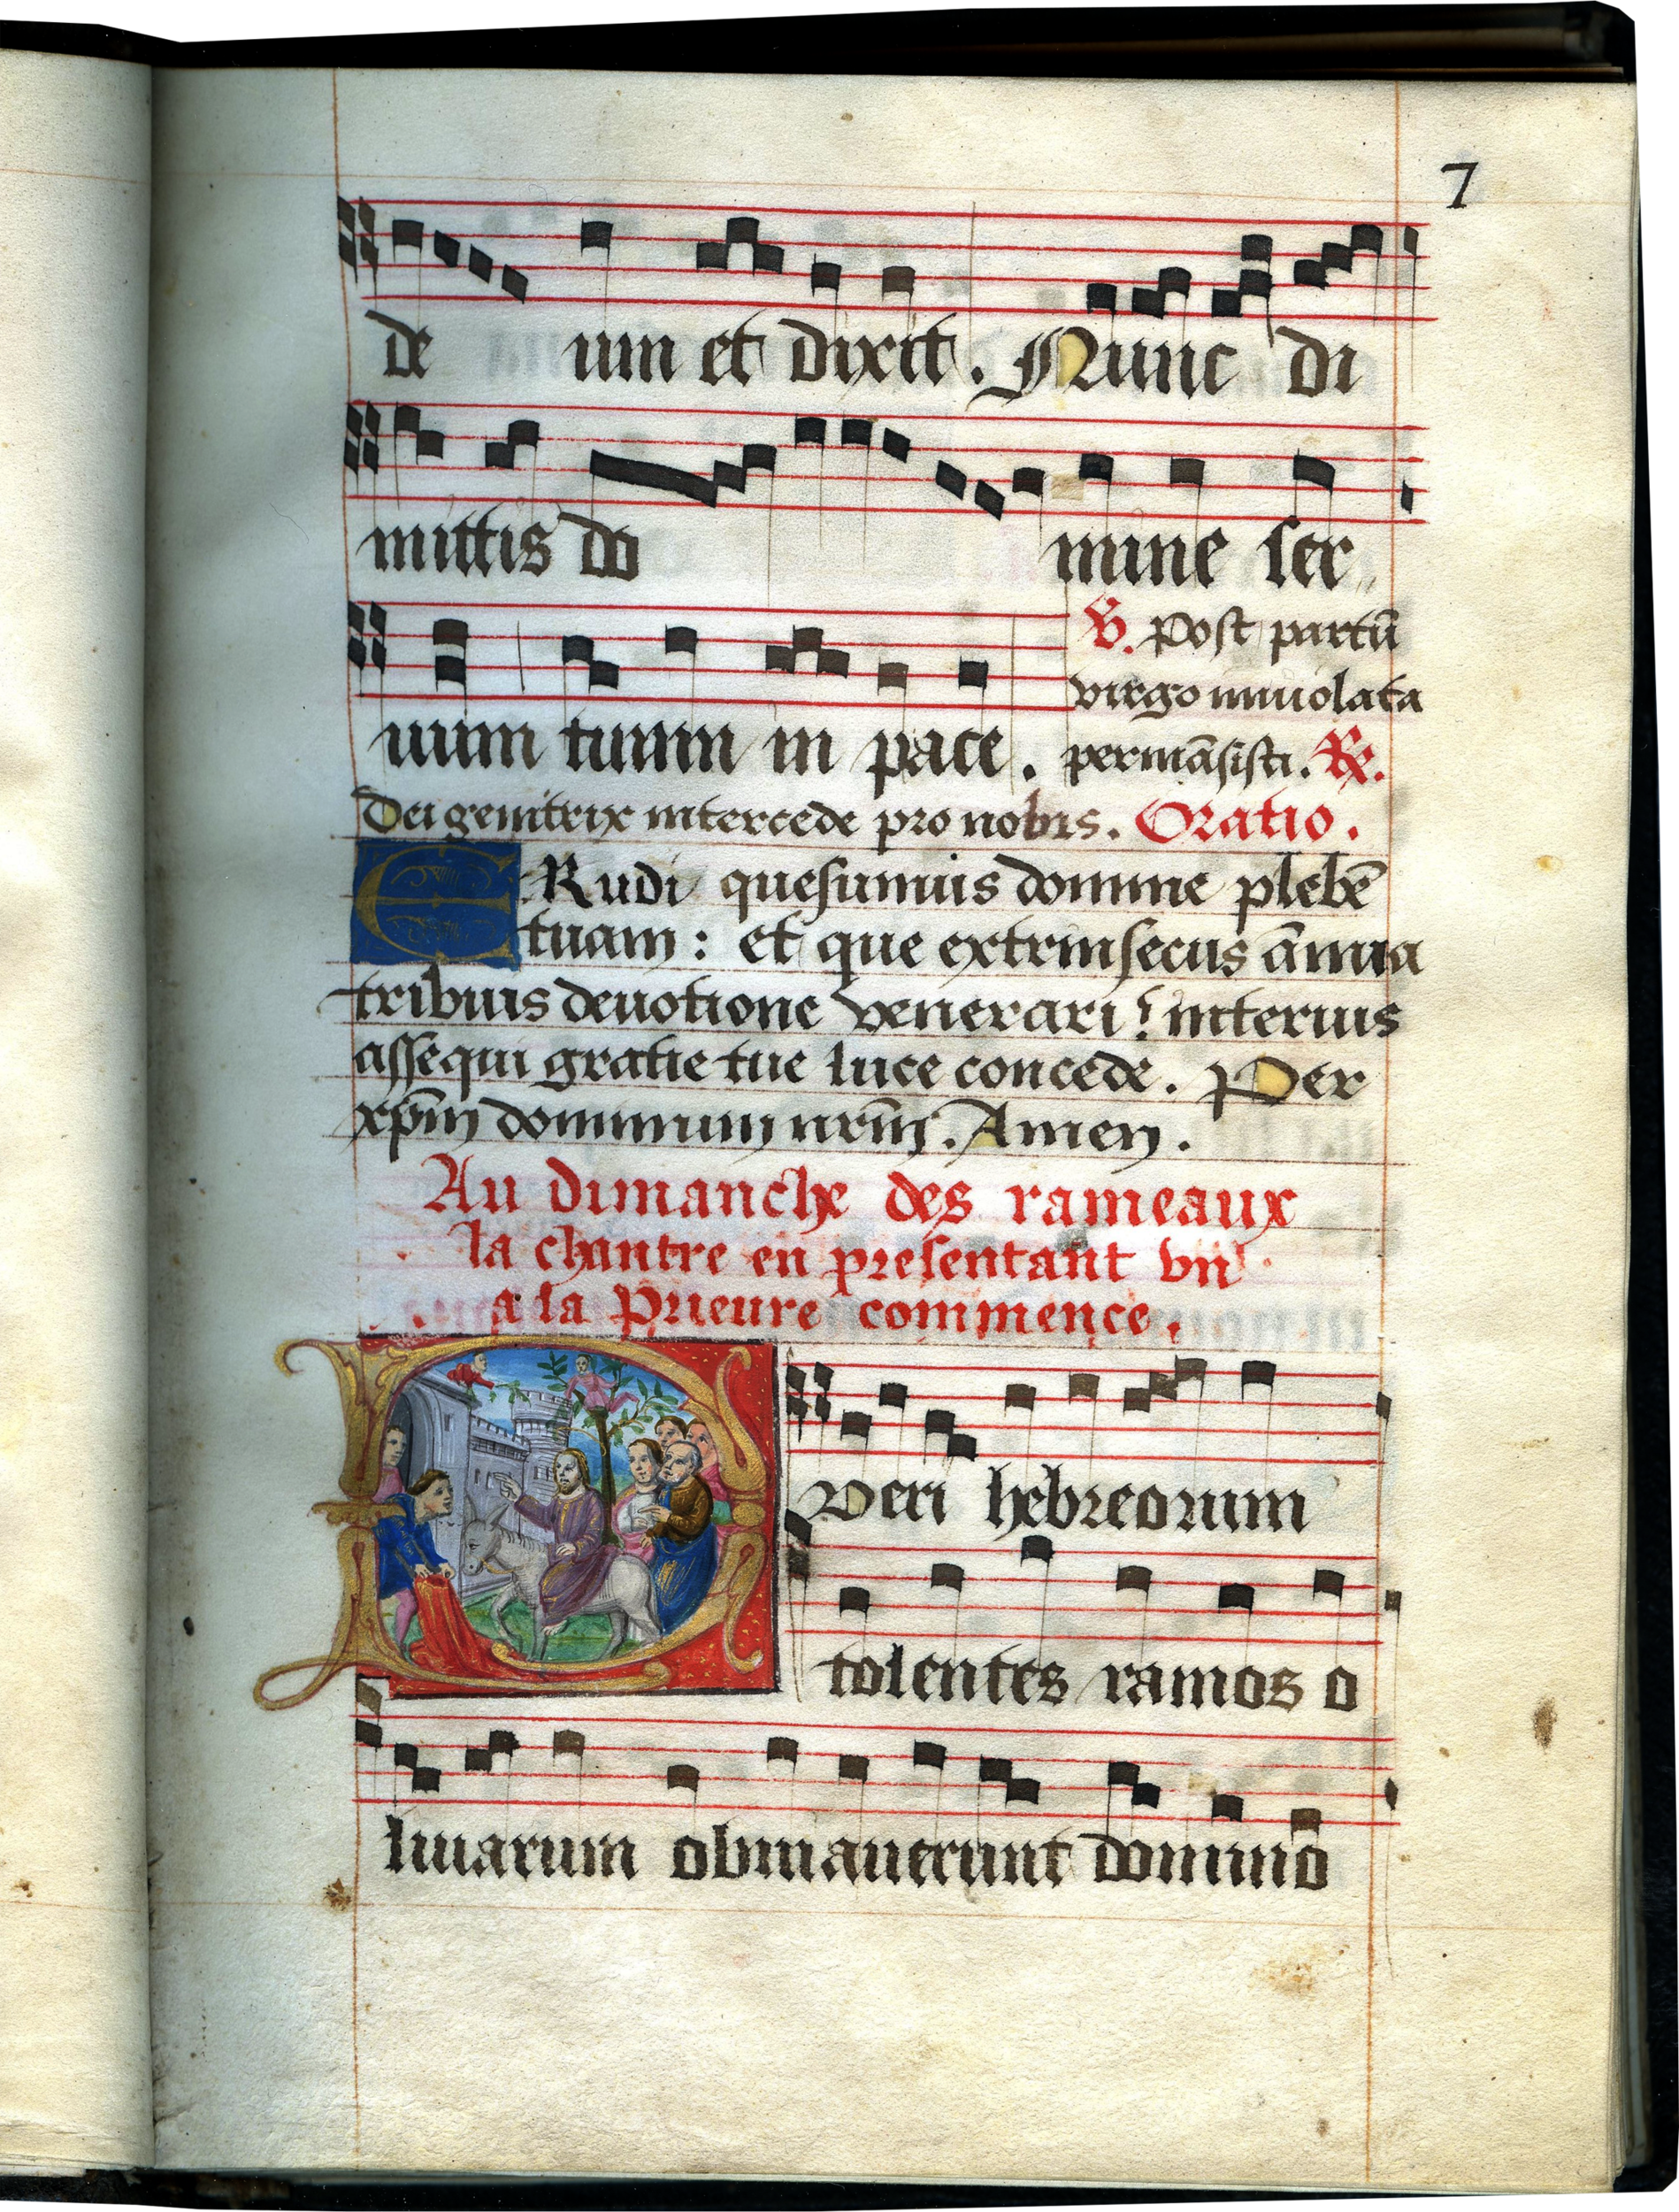 7
de um et dixit. Nunc di
mittis do mine ser
uum tuum in pace.
V. Post partū
virgo inuiolata
permāsisti. R.
Dei genitrix intercede pro nobis. Oratio.
ERudi quesumus domine plebē
tuam: et que extrinsecus ānua
tribuis deuotione venerari: interius
assequi gratie tue luce concede. Per
xp̄m dominum nr̄m. Amen.
Au dimanche des rameaux
la chantre en presentant vn
a la Prieure commence.
Pveri hebreorum
tolentes ramos o
liuarum obuiauerunt domino